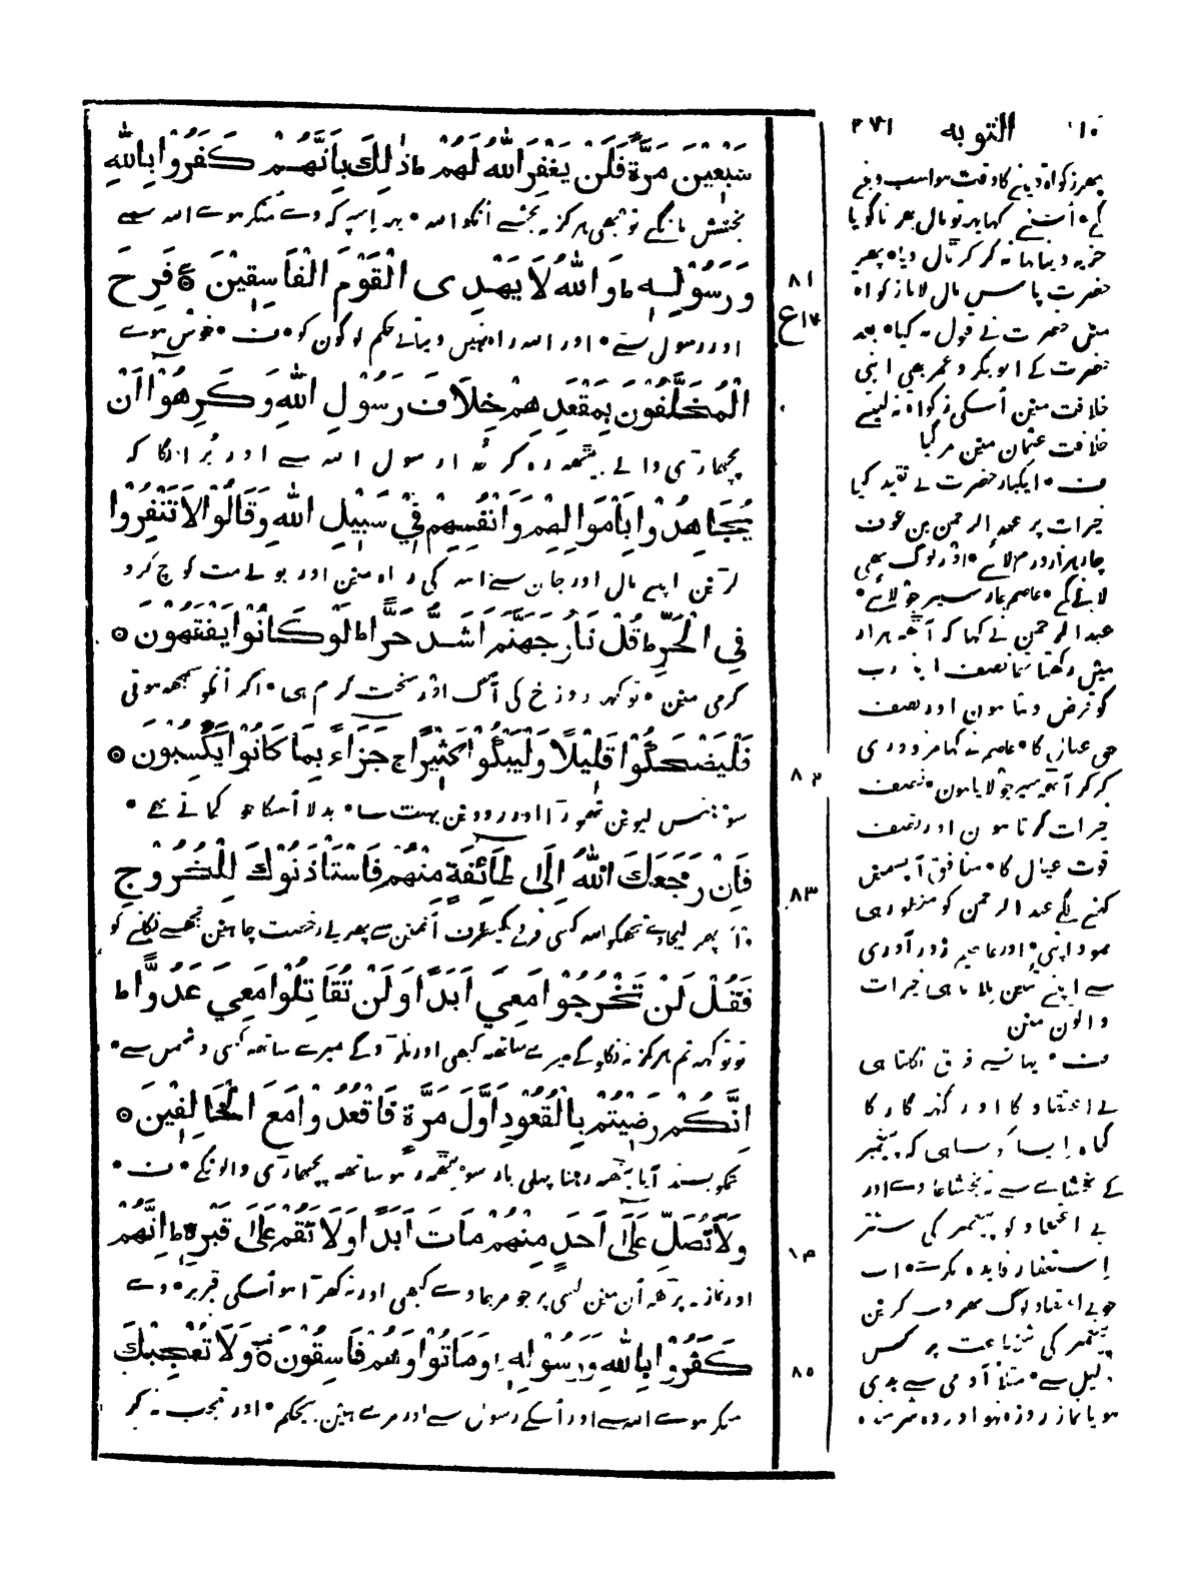 ١٠ التوبه ٣٧١
سَبْعِيْنَ مَرَّةً فَلَنْ يَغْفِرَ اللّٰهُ لَهُمْ ط ذٰلِكَ بِاَنَّهُمْ كَفَرُوْا بِاللّٰهِ
بخشش مانگے تو بھی ہرگز نہ بخشے انکو اللہ • یہ اِسپہ کہ وے منکر ہوے اللہ سے
وَ رَسُوْلِهٖ ط وَ اللّٰهُ لَا يَهْدِى الْقَوْمَ الْفَاسِقِيْنَ ۞ فَرِحَ
اور رسول سے • اور اللہ راہ نہیں دیتا بے حکم لوگون کو • ف • خوش ہوے
الْمُخَلَّفُوْنَ بِمَقْعَدِهِمْ خِلَافَ رَسُوْلِ اللّٰهِ وَ كَرِهُوْا اَنْ
پچھاڑی والے بیٹھہ رہ کر جدا رسول اللہ سے اور بُرا لگا کہ
يُجَاهِدُوْا بِاَمْوَالِهِمْ وَ اَنْفُسِهِمْ فِيْ سَبِيْلِ اللّٰهِ وَ قَالُوْا لَا تَنْفِرُوْا
لڑین اپنے مال اور جان سے اللہ کی راہ مین اور بولے مت کوچ کرو
فِي الْحَرِّ ط قُلْ نَارُ جَهَنَّمَ اَشَدُّ حَرًّا ط لَوْ كَانُوْا يَفْقَهُوْنَ ۞
گرمی مین • تو کہہ دوزخ کی آگ اور سخت گرم ہی • اگر انکو سمجھہ ہوتی
فَلْيَضْحَكُوْا قَلِيْلًا وَ لْيَبْكُوْا كَثِيْرًا ج جَزَاءً بِمَا كَانُوْا يَكْسِبُوْنَ ۞
سو ہنس لیوین تھوڑا اور روئین بہت سا • بدلا اُسکا جو کماتے تھے •
فَاِنْ رَجَعَكَ اللّٰهُ اِلٰى طَائِفَةٍ مِنْهُمْ فَاسْتَاْذَنُوْكَ لِلْخُرُوْجِ
پھر لیجاوے تجھکو اللہ کسی فرقے کیطرف اُنمین سے پھر یے رخصت چاہین تجھسے نکلنے کو
فَقُلْ لَنْ تَخْرُجُوْا مَعِيَ اَبَدًا وَ لَنْ تُقَاتِلُوْا مَعِيَ عَدُوًّا ط
تو تو کہہ تم ہرگز نہ نکلوگے میرے ساتھہ کبھی اور نہ لڑوگے میرے ساتھہ کسی دشمن سے •
اِنَّكُمْ رَضِيْتُمْ بِالْقُعُوْدِ اَوَّلَ مَرَّةٍ فَاقْعُدُوْا مَعَ الْخَالِفِيْنَ ۞
تمکو پسند آیا بیٹھہ رہنا پہلی بار سو بیٹھہ رہو ساتھہ پچھاڑی والونکے • ف •
وَلَا تُصَلِّ عَلٰى اَحَدٍ مِنْهُمْ مَاتَ اَبَدًا وَ لَا تَقُمْ عَلٰى قَبْرِهٖ ط اِنَّهُمْ
اور نماز نہ پڑھہ اُن مین کسی پر جو مرجاوے کبھی اور نہ کھڑا ہو اُسکی قبر پر • وے
كَفَرُوْا بِاللّٰهِ وَ رَسُوْلِهٖ وَ مَاتُوْا وَهُمْ فَاسِقُوْنَ ۞ وَ لَا تُعْجِبْكَ
منکر ہوے اللہ سے اور اُسکے رسول سے اور مرے ہین بیحکم • اور تعجب نہ کر
٨١
١٧ ع
٨٢
٨٣
٨٤
٨٥
پھر زکواۃ دینے کا وقت ہوا سب دینے
لگے • اُسنے کہا یہ تو مال بھرنا گویا
جزیہ دینا بہانہ کر کر ٹال دیا • پھر
حضرت پاس مال لایا زکواۃ
مین حضرت نے قبول نہ کیا • بعد
حضرت کے ابوبکر و عمر بھی اپنی
خلافت مین اُسکی زکواۃ نہ لیتے
خلافت عثمان مین مرگیا
ف • ایکبار حضرت نے تقید کیا
خیرات پر عبد الرحمن بن عوف
چار ہزار درم لائے • اور لوگ بھی
لانے لگے • عاصم چار سیر جَو لائے •
عبد الرحمن نے کہا کہ آٹھہ ہزار
مین رکھتا تھا نصف اپنے رب
کو قرض دیتا ہون اور نصف
حق عیال کا • عاصم نے کہا مزدوری
کر کر آٹھہ سیر جَو لایا ہون • نصف
خیرات کرتا ہون اور نصف
قوت عیال کا • منافق آپسمین
کہنے لگے عبد الرحمن کو منظور ہی
نمود اپنی • اور عاصم زور آوری
سے اپنے تئین ملاتا ہی خیرات
والون مین
ف • یہانسے فرق نکلتا ہی
بے اعتقاد کا اور گنہ گار کا
گناہ اِیسا کونسا ہی کہ پیغمبر
کے بخشاے سے نہ بخشا جاوے اور
بے اعتقاد کو پیغمبر کی ستر
اِستغفار فایدہ نہ کرے • اب
جو بے اعتقاد لوگ بھروسا کرین
پیغمبر کی شفاعت پر کس
دلیل سے • مثلاً آدمی سے بدی
ہو یا نماز روزہ نہو اور وہ شرمندہ